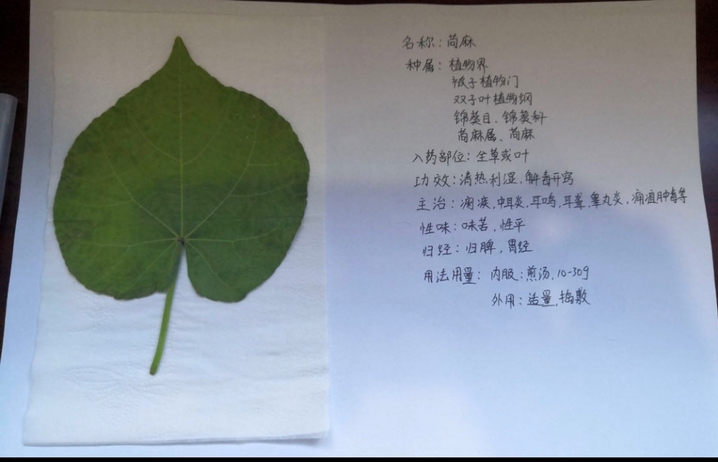 名称：苘麻
种属：植物界
被子植物门
双子叶植物纲
锦葵目、锦葵科
苘麻属、苘麻
入药部位：全草或叶
功效：清热利湿，解毒开窍
主治：痢疾，中耳炎，耳鸣，耳聋，睾丸炎，痈疽肿毒等
性味：味苦，性平
归经：归脾，胃经
用法用量：内服：煎汤，10-30g
外用：适量，捣敷